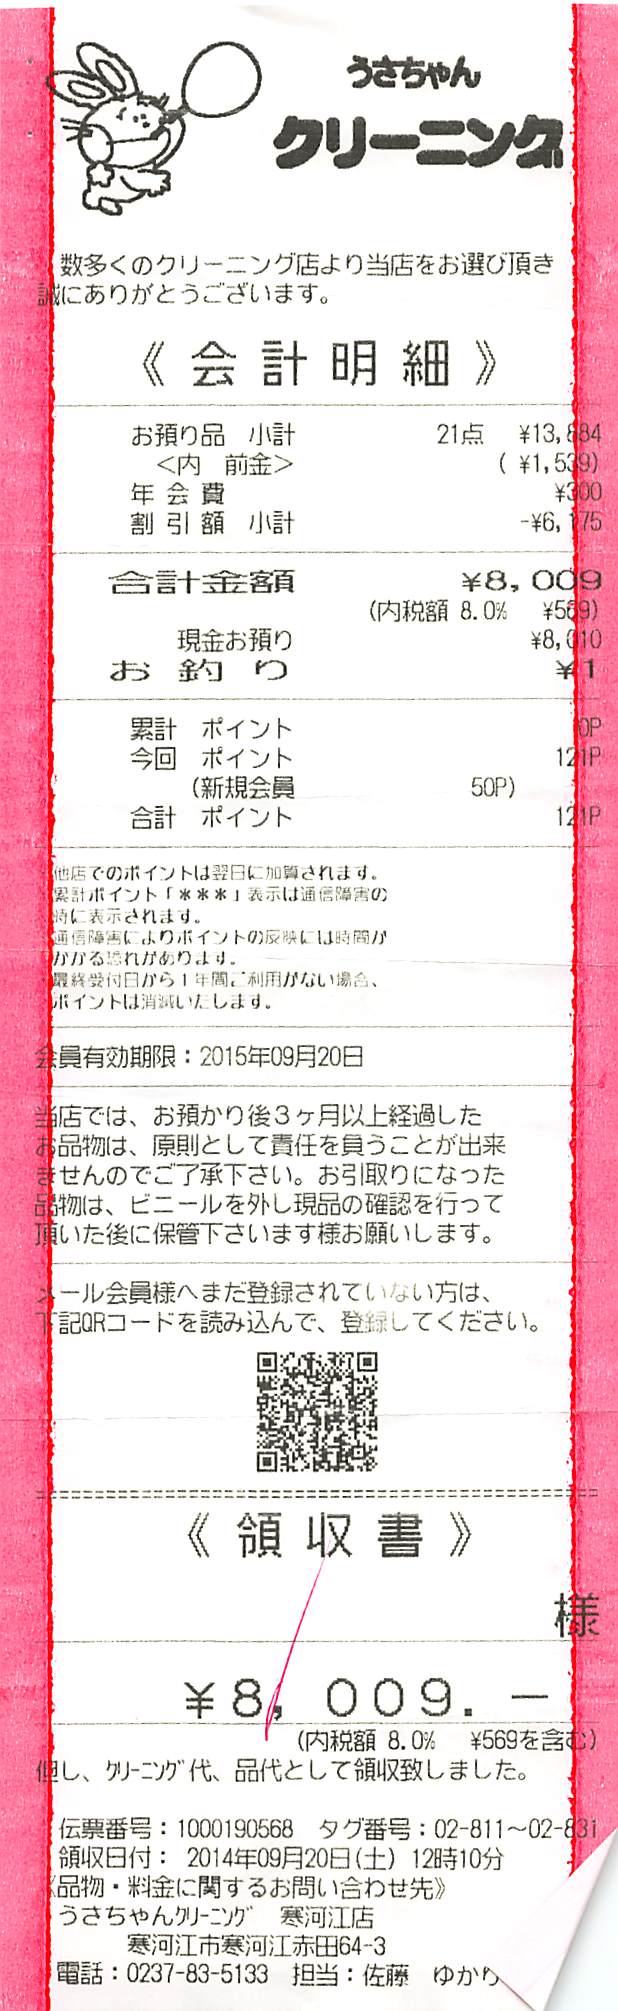 うさちゃん
クリーニング
数多くのクリーニング店より当店をお選び頂き
誠にありがとうございます。
《会計明細》
お預り品 小計 21点 ¥13,884
<内 前金> ( ¥1,539)
年会費 ¥300
割引額 小計 -¥6,175
合計金額 ¥8,009
(内税額 8.0% ¥569)
現金お預り ¥8,010
お釣り ¥1
累計 ポイント 0P
今回 ポイント 121P
(新規会員 50P)
合計 ポイント 121P
他店でのポイントは翌日に加算されます。
累計ポイント「＊＊＊」表示は通信障害の
時に表示されます。
通信障害によりポイントの反映には時間が
かかる恐れがあります。
最終受付日から1年間ご利用がない場合、
ポイントは消滅いたします。
会員有効期限：2015年09月20日
当店では、お預かり後3ヶ月以上経過した
お品物は、原則として責任を負うことが出来
ませんのでご了承下さい。お引取りになった
品物は、ビニールを外し現品の確認を行って
頂いた後に保管下さいます様お願いします。
メール会員様へまだ登録されていない方は、
下記QRコードを読み込んで、登録してください。
《領収書》
様
¥8,009.－
(内税額 8.0% ¥569を含む)
但し、ｸﾘｰﾆﾝｸﾞ代、品代として領収致しました。
伝票番号：1000190568 タグ番号：02-811～02-831
領収日付： 2014年09月20日(土) 12時10分
《品物・料金に関するお問い合わせ先》
うさちゃんｸﾘｰﾆﾝｸﾞ 寒河江店
寒河江市寒河江赤田64-3
電話：0237-83-5133 担当：佐藤 ゆかり